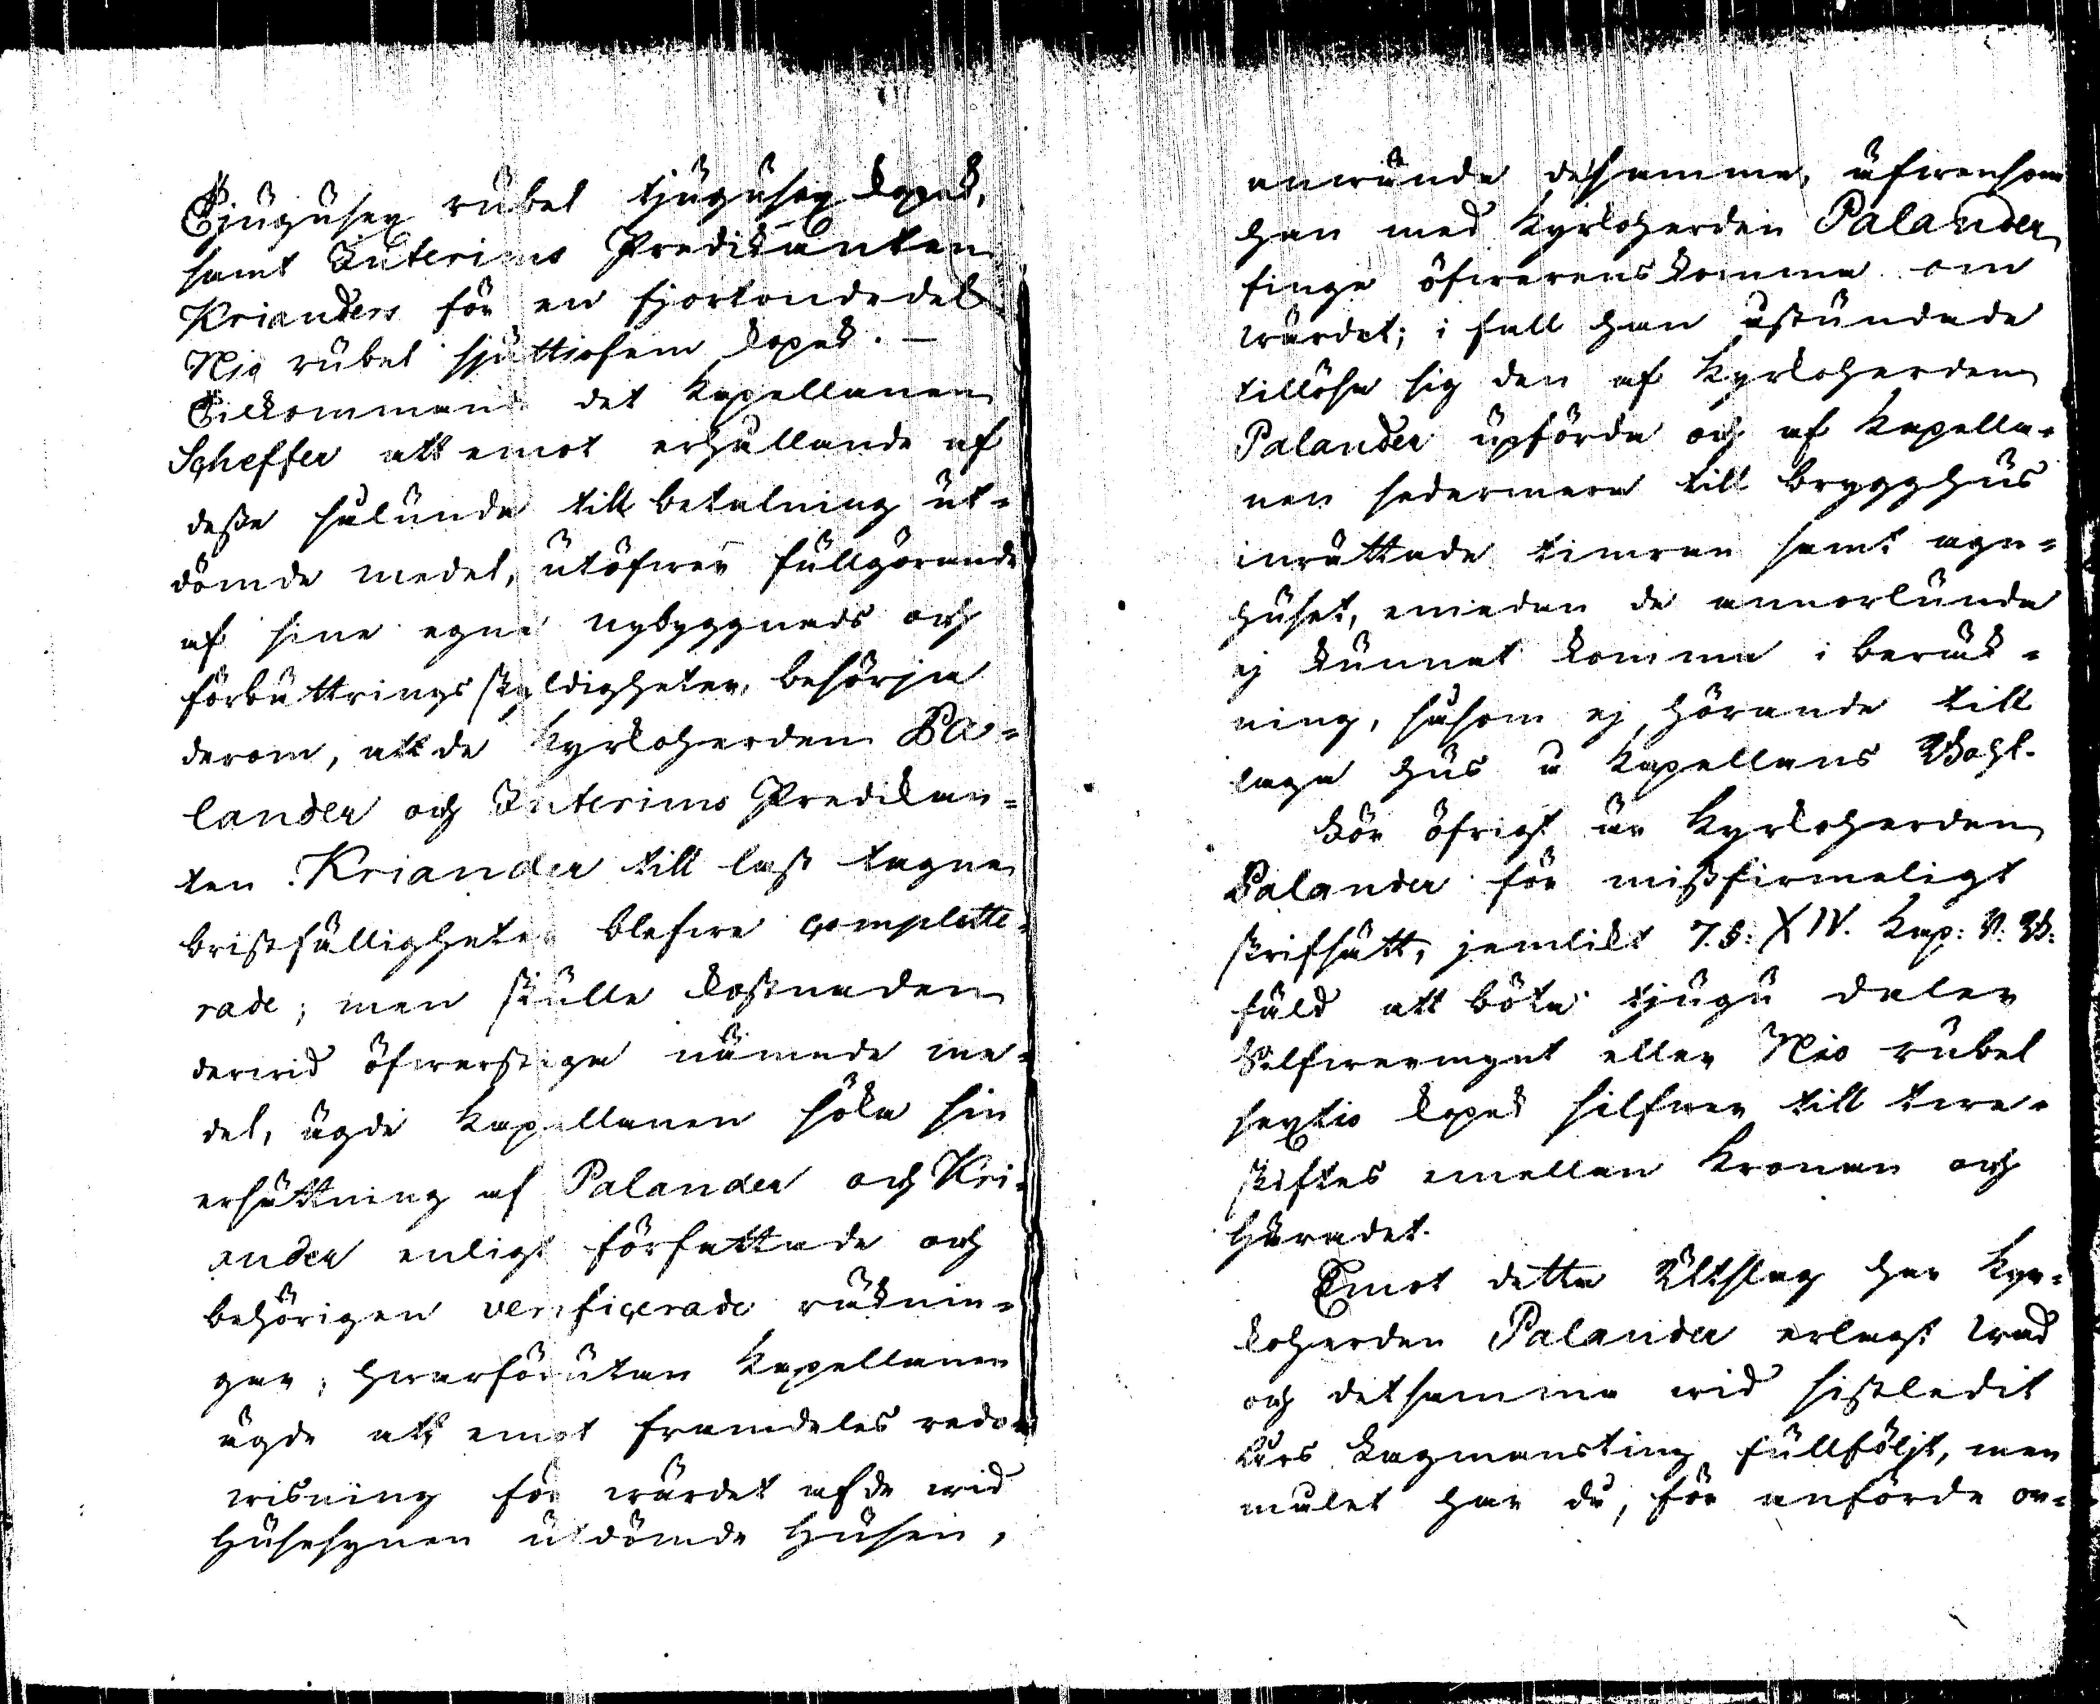 Tjugusex rubel tjugusex kopek,
samt Interims Predikanten
Krianders för en fjortondedel
Nio rubel sjuttiofem kopek. —
Tillkommande det Kapellanen
Scheffer att emot erhållande af
desse sålunda till betalning ut-
dömde medel, utöfwer fullgörande
af sine egne nybyggnads och
förbättringsskyldigheter, besörja
derom, att de Kyrkoherden Pa-
lander och Interims Predikan-
ten Kriander till last tagne
bristfälligheter blefwe complette-
rade; men skulle kostnaden
derwid öfwerstiga nämnde me-
del, ägde Kapellanen söka sin
ersättning af Palander och Kri-
ander enligt författade och
behörigen verificerade räknin-
gar; hwarförutan Kapellanen
ägde att emot framdeles redo-
wisning för wärdet af de wid
Husesynen utdömde Husen,
anwända desamma, äfwensom
han med Kyrkoherden Palander
finge öfwerenskomma om
wärdet; i fall han åstundade
tillösa sig den af Kyrkoherden
Palander upförda och af Kapella-
nen sedermera till brygghus
inrättade timran samt agn-
huset, emedan de annorlunda
ej kunnat komma i beräk-
ning, såsom ej hörande till
laga hus å Kapellans Bohl.
För öfrigt är Kyrkoherden
Palander för missfirmeligt
skrifsätt, jemlikt 7. §: XIV. Kap: R. B:
fäld att böta tjugu daler
Silfwermynt eller Nio rubel
sextio kopek silfwer till twe-
skiftes emellan Kronan och
Häradet.
Emot detta Utslag har Kyr-
koherden Palander erlagt wad
och detsamma wid sistledit
års Lagmansting fullföljt, men
målet har då, för anförde or-